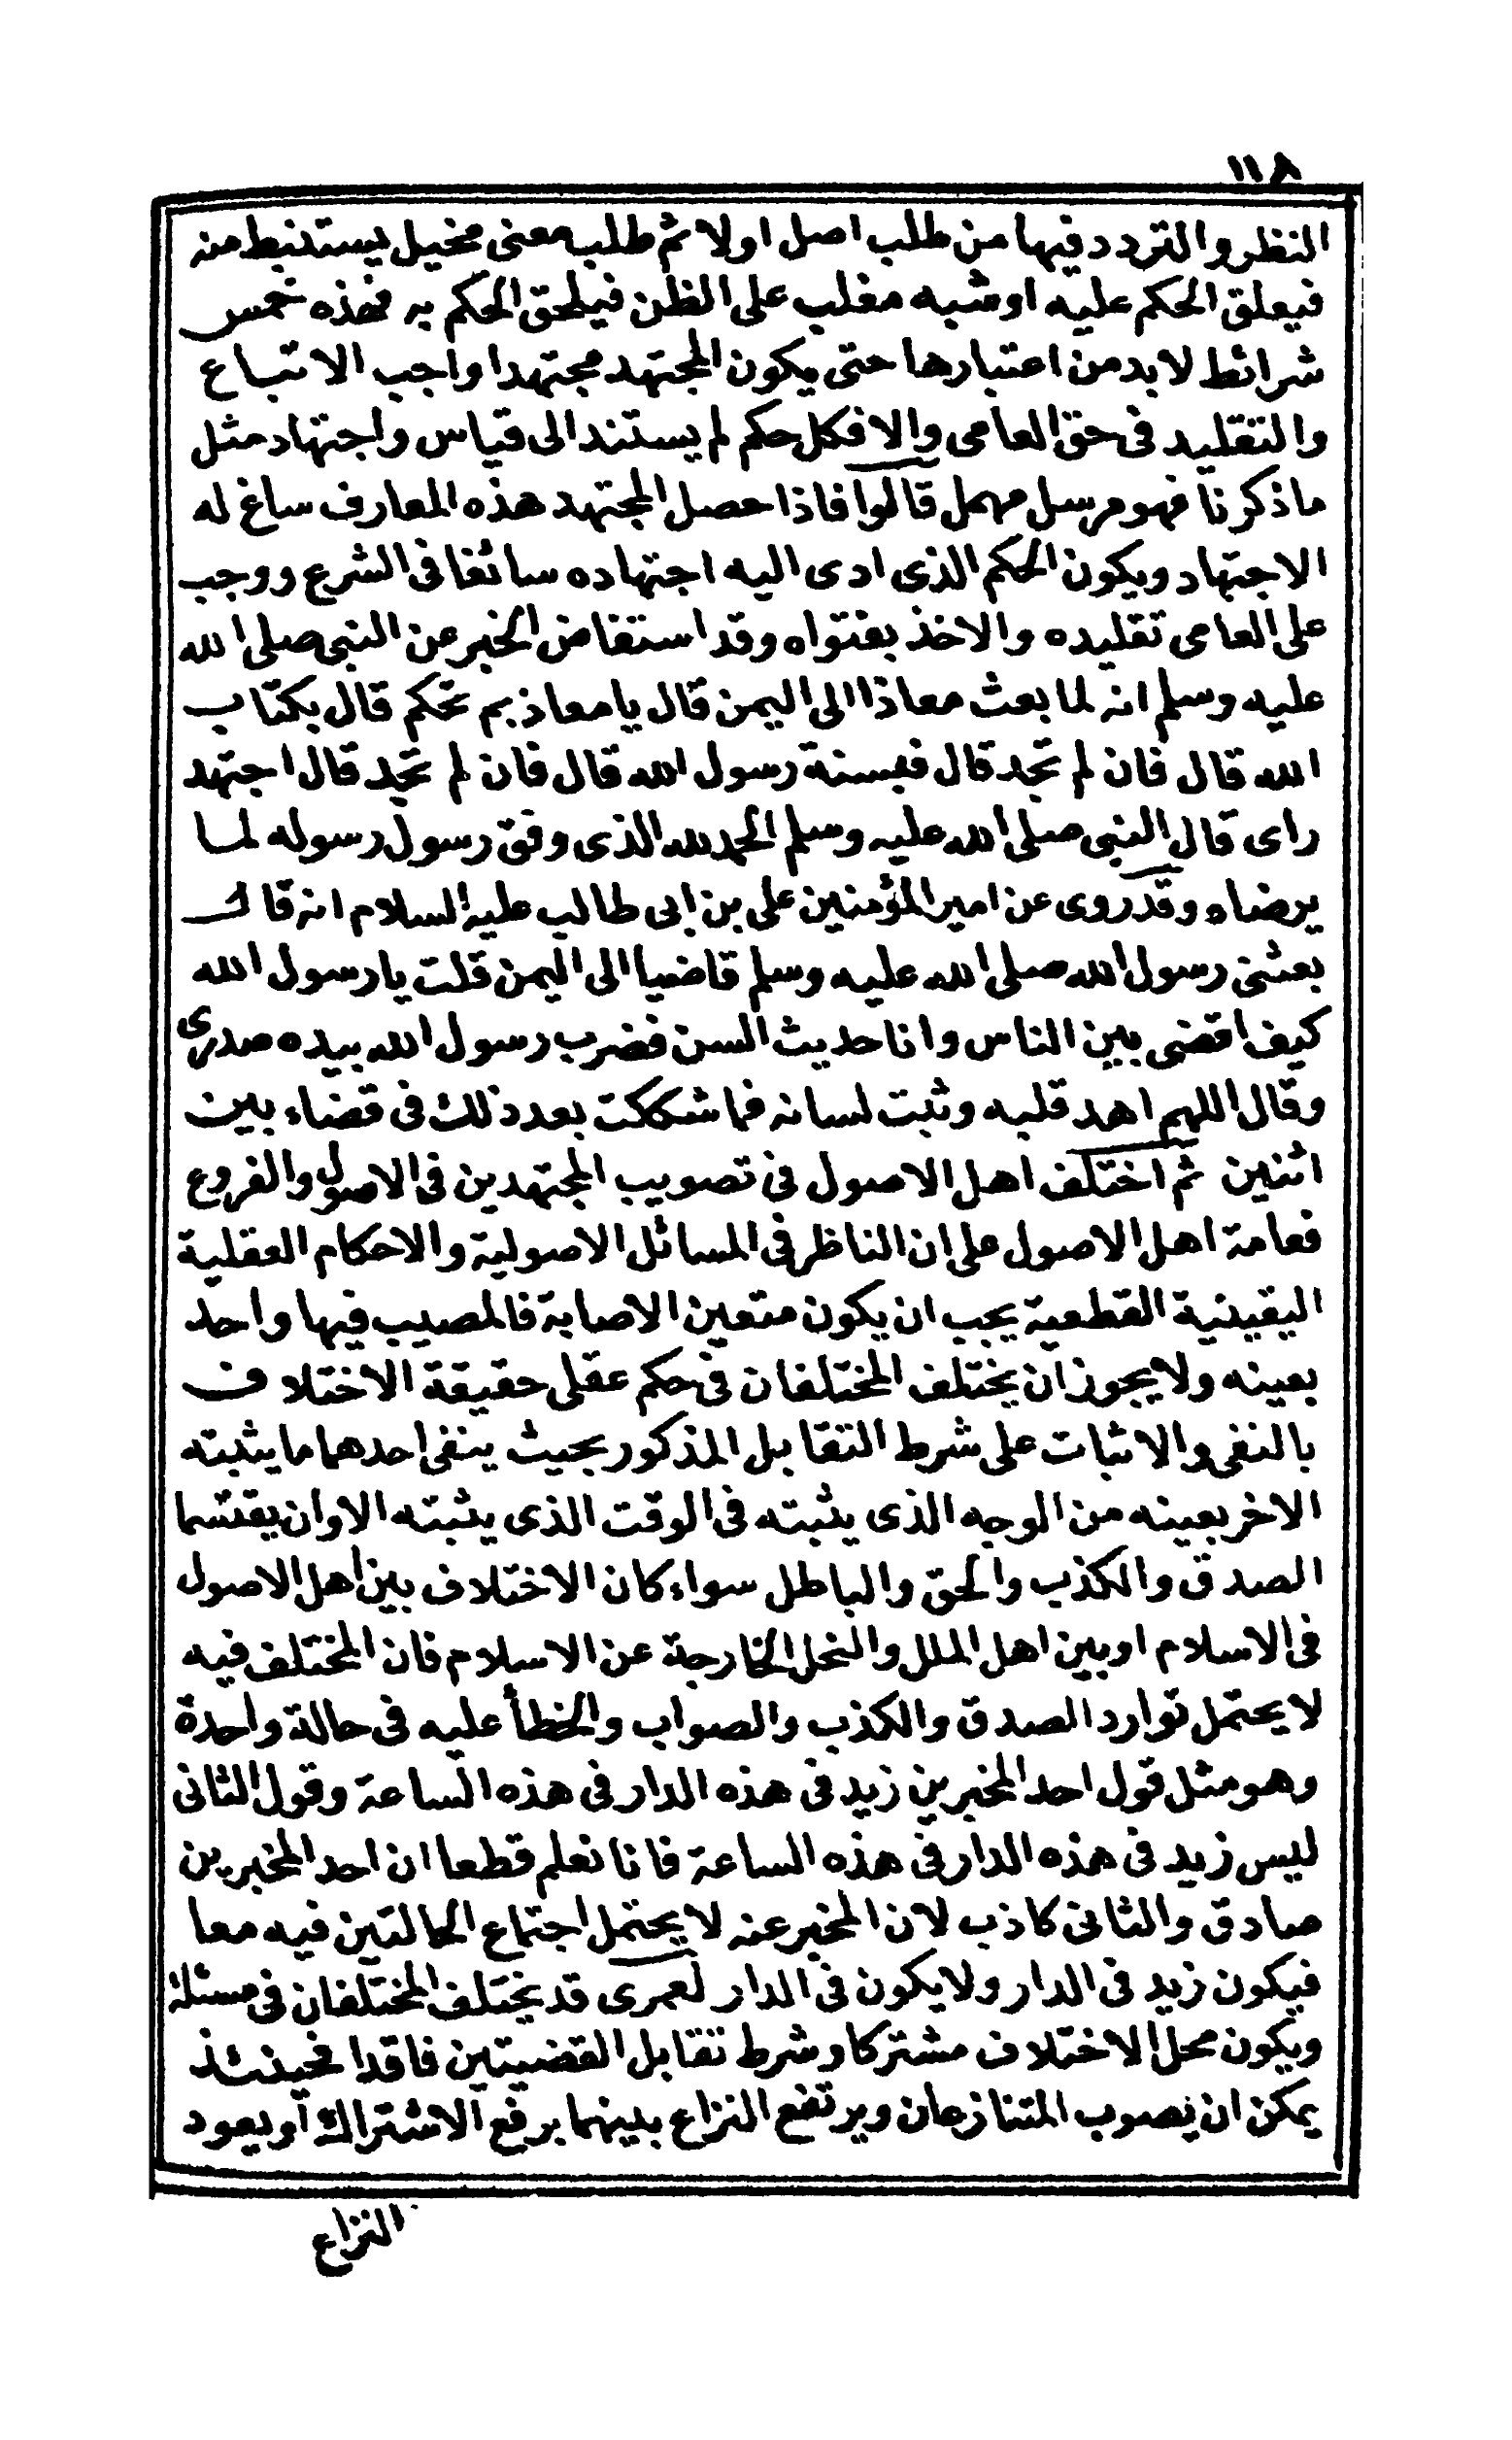 ١١٨
النظر والتردد فيها من طلب اصل اولا ثم طلب معنى مخيل يستنبط منه
فيعلق الحكم عليه اوشبه مغلب على الظن فيلحق الحكم به فهذه خمس
شرائط لابد من اعتبارها حتى يكون المجتهد مجتهدا واجب الاتباع
والتقليد فى حق العامى والا فكل حكم لم يستند الى قياس واجتهاد مثل
ماذكرنا فهو مرسل مهمل قالوا فاذا حصل المجتهد هذه المعارف ساغ له
الاجتهاد ويكون الحكم الذى ادى اليه اجتهاده سائغا فى الشرع ووجب
على العامى تقليده والاخذ بفتواه وقد استفاض الخبر عن النبى صلى الله
عليه وسلم انه لما بعث معاذا الى اليمن قال يا معاذ بم تحكم قال بكتاب
الله قال فان لم تجد قال فبسنة رسول الله قال فان لم تجد قال اجتهد
راى قال النبى صلى الله عليه وسلم الحمد لله الذى وفق رسول رسوله لما
يرضاه وقد روى عن امير المؤمنين على بن ابى طالب عليه السلام انه قال
بعثنى رسول الله صلى الله عليه وسلم قاضيا الى اليمن قلت يا رسول الله
كيف اقضى بين الناس وانا حديث السن فضرب رسول الله بيده صدرى
وقال اللهم اهد قلبه وثبت لسانه فما شككت بعد ذلك فى قضاء بين
اثنين ثم اختلف اهل الاصول فى تصويب المجتهدين فى الاصول والفروع
فعامة اهل الاصول على ان الناظر فى المسائل الاصولية والاحكام العقلية
اليقينية القطعية يجب ان يكون متعين الاصابة فالمصيب فيها واحد
بعينه ولا يجوز ان يختلف المختلفان فى حكم عقلى حقيقة الاختلاف
بالنفى والاثبات على شرط التقابل المذكور بحيث ينفى احدهما ما يثبته
الاخر بعينه من الوجه الذى يثبته فى الوقت الذى يثبته الا وان يقتسما
الصدق والكذب والحق والباطل سواء كان الاختلاف بين اهل الاصول
فى الاسلام او بين اهل الملل والنحل الخارجة عن الاسلام فان المختلف فيه
لا يحتمل توارد الصدق والكذب والصواب والخطأ عليه فى حالة واحدة
وهو مثل قول احد المخبرين زيد فى هذه الدار فى هذه الساعة وقول الثانى
ليس زيد فى هذه الدار فى هذه الساعة فانا نعلم قطعا ان احد المخبرين
صادق والثانى كاذب لان المخبر عنه لا يحتمل اجتماع الحالتين فيه معا
فيكون زيد فى الدار ولا يكون فى الدار لعمرى قد يختلف المختلفان فى مسئلة
ويكون محل الاختلاف مشتركا وشرط تقابل القضيتين فاقدا فحينئذ
يمكن ان يصوب المتنازعان ويرتفع النزاع بينهما برفع الاشتراك او يعود
النزاع